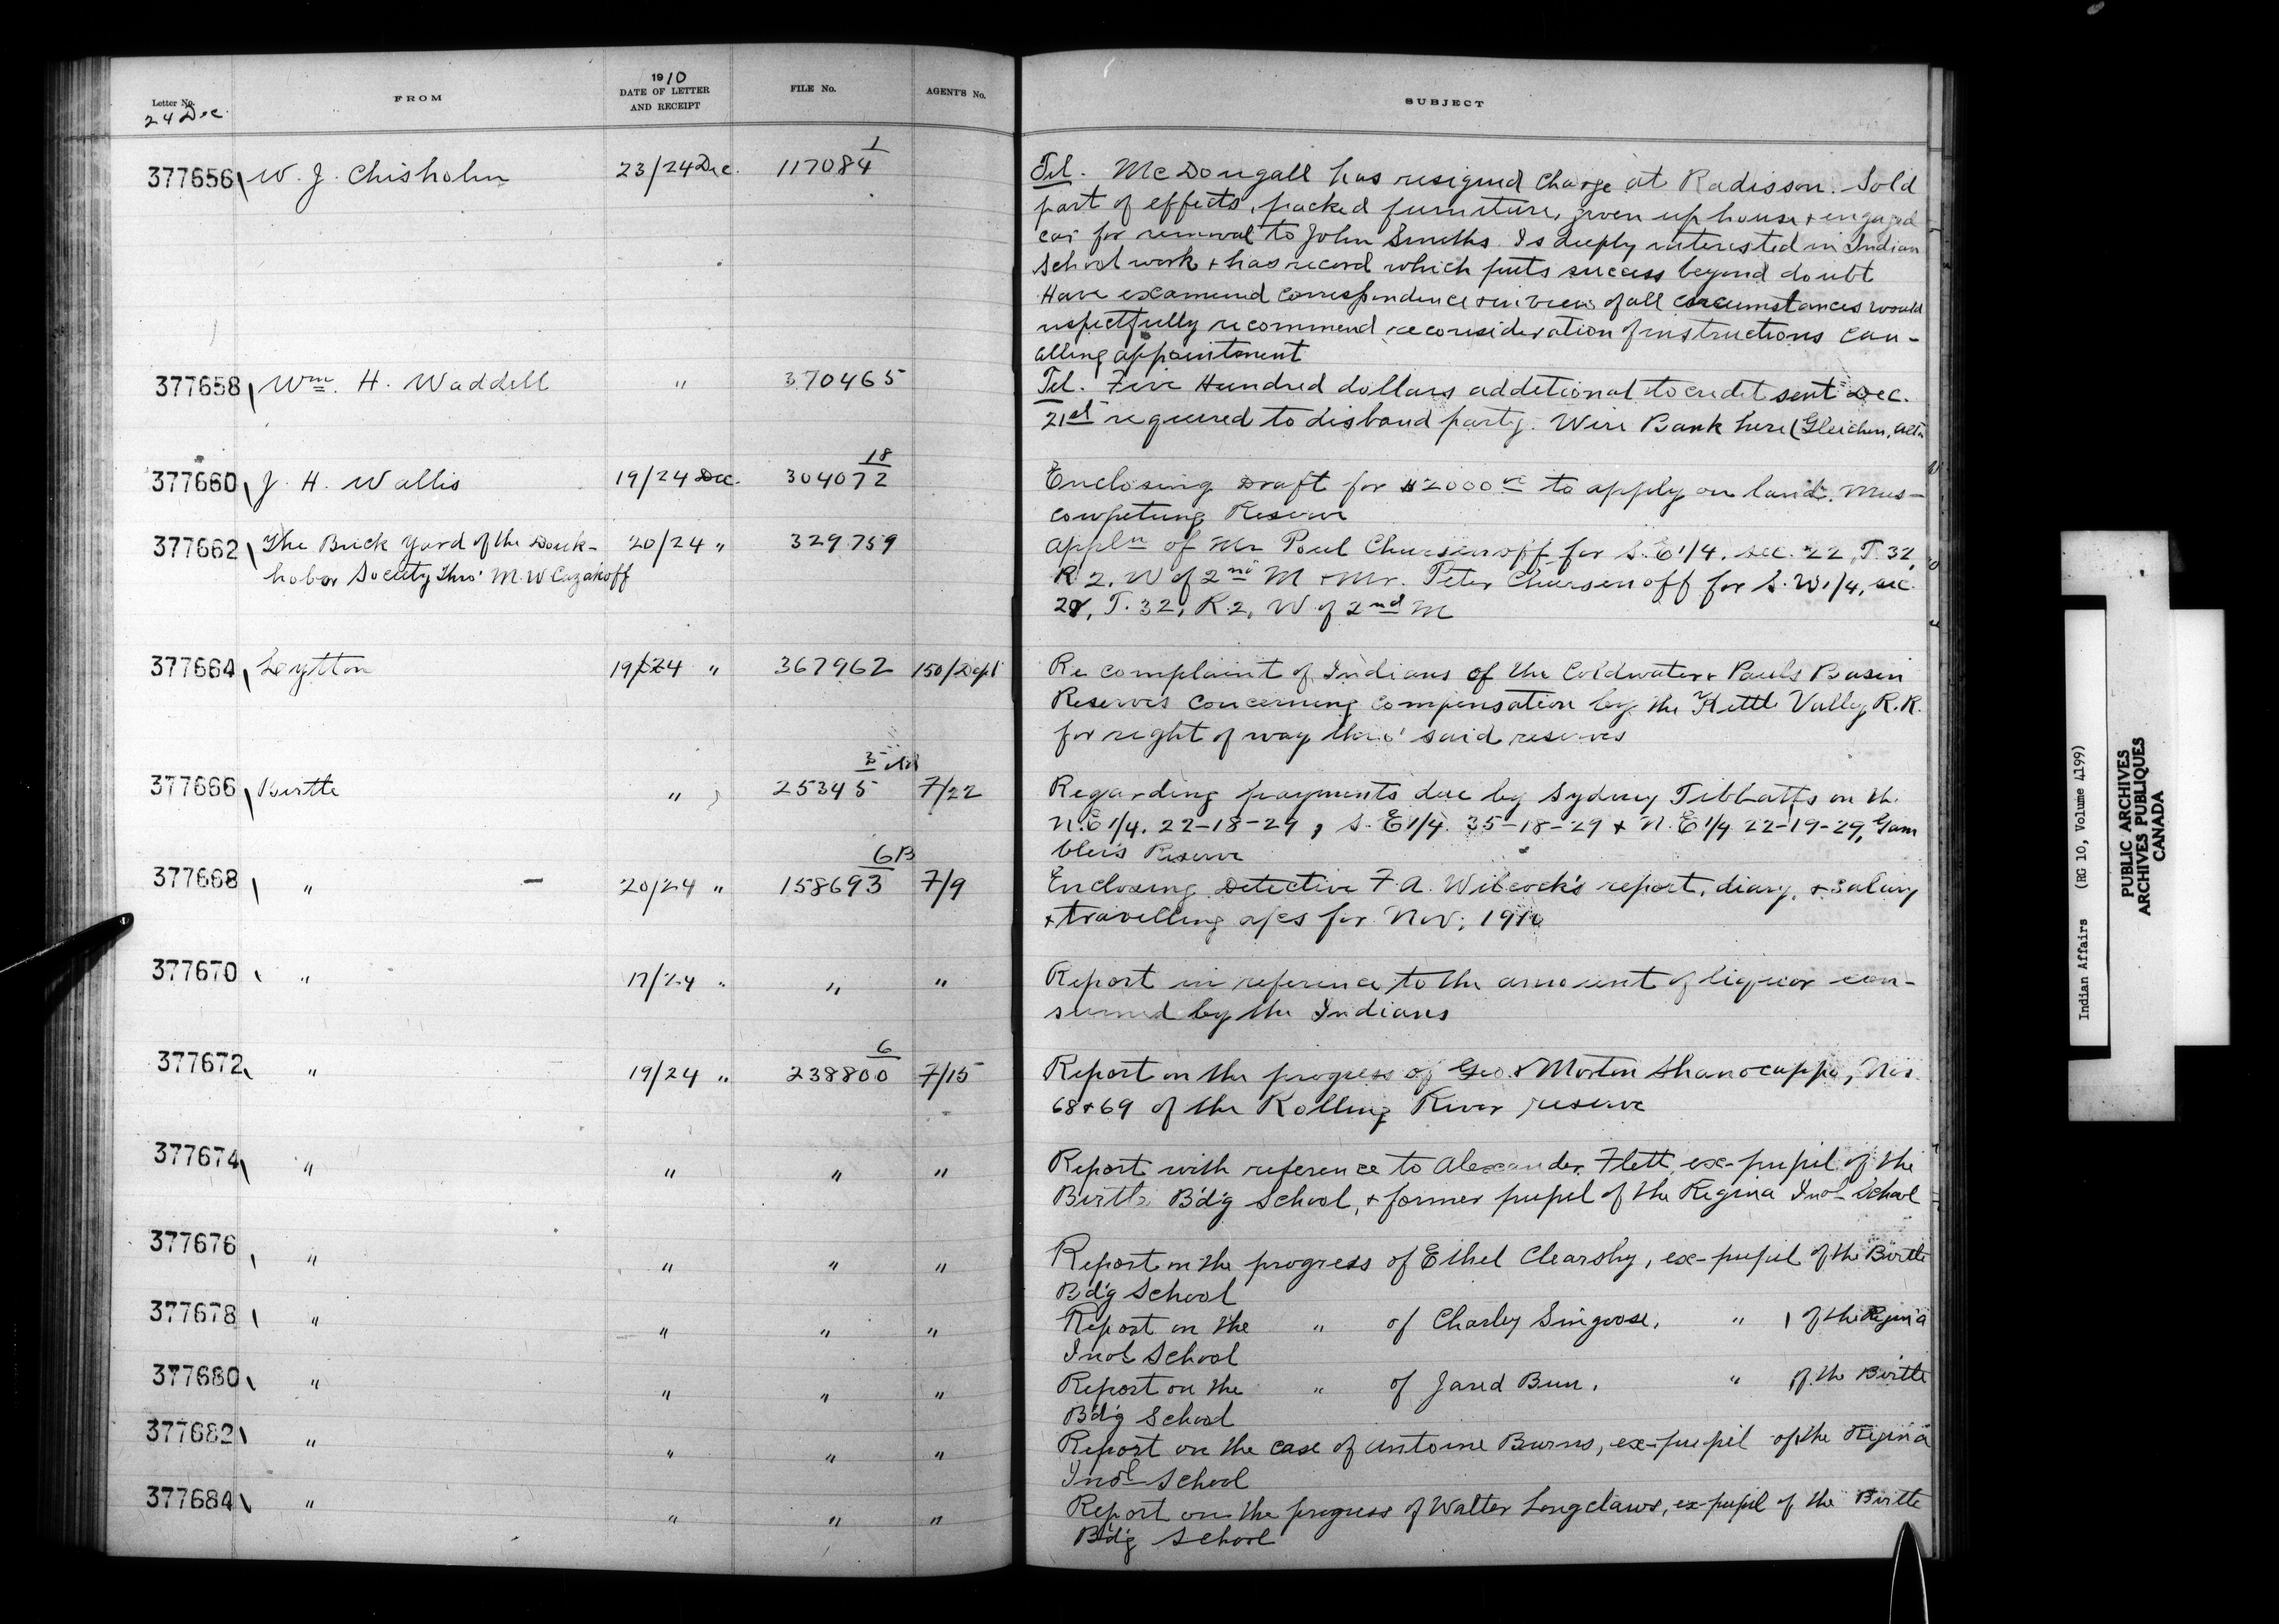 Letter No. FROM 1910 DATE OF LETTER AND RECEIPT FILE No. AGENT'S No. SUBJECT
24 Dec.
377656 W. J. Chisholm 23/24 Dec. 117084 1
Tel. McDougall has resigned charge at Radisson. Sold
part of effects, packed furniture, given up house & engaged
car for removal to John Smiths. Is deeply interested in Indian
School work & has record which puts success beyond doubt
Have examined correspondence & in view of all circumstances would
respectfully recommend reconsideration of instructions can-
celling appointment
377658 Wm. H. Waddell " 370465
Tel. Five Hundred dollars additional to credit sent Dec.
21st required to disband party. Wire Bank here (Gleichen, Alta
377660 J. H. Wallis 19/24 Dec. 304072 18
Enclosing Draft for $2000 to apply on land, Mus-
cowpetung Reserve
377662 The Brick Yard of the Douk- 20/24 " 329759
hobor Society thro' M. W. Cazakoff
Appln of Mr Paul Chursenoff for S. E 1/4. sec. 22, T. 32,
R. 2, W of 2nd M & Mr. Peter Chursenoff for S. W 1/4, sec.
T. 32, R. 2, W of 2nd M
377664 Lytton 19/24 " 367962 150/Dept
Re complaint of Indians of the Coldwater & Pauls Basin
Reserves concerning compensation by the Kettle Valley R.R.
for right of way thro' said reserves
377666 Birtle " 25345 7/22
Regarding payments due by Sydney Tibbatts on the
N. E 1/4. 22-18-29, S. E 1/4. 35-18-29 & N. E 1/4 22-19-29, Gam
bler's Reserve
377668 " 20/24 " 158693 6B 7/9
Enclosing Detective F. A. Wilcock's report, diary, & salary
& travelling a/cs for Nov; 1910
377670 " 17/24 " " "
Report in reference to the amount of liquor con-
sumed by the Indians
377672 " 19/24 " 238800 6 7/15
Report on the progress of Geo. & Morton Shanocappo, Nos.
68 & 69 of the Rolling River reserve
377674 " " " "
Report with reference to Alexander Flett, ex-pupil of the
Birtle Bd'g School, & former pupil of the Regina Indl School
377676 " " " "
Report on the progress of Ethel Clearsky, ex-pupil of the Birtle
Bd'g School
377678 " " " "
Report on the " of Charley Singoose, " of the Regina
Indl School
377680 " " " "
Report on the " of Jared Bun, " of the Birtle
Bd'g School
377682 " " " "
Report on the case of Antoine Burns, ex-pupil of the Regina
Indl School
377684 " " " "
Report on the progress of Walter Longclaws, ex-pupil of the Birtle
Bd'g School
Indian Affairs (RG 10, Volume 4199)
PUBLIC ARCHIVES
ARCHIVES PUBLIQUES
CANADA